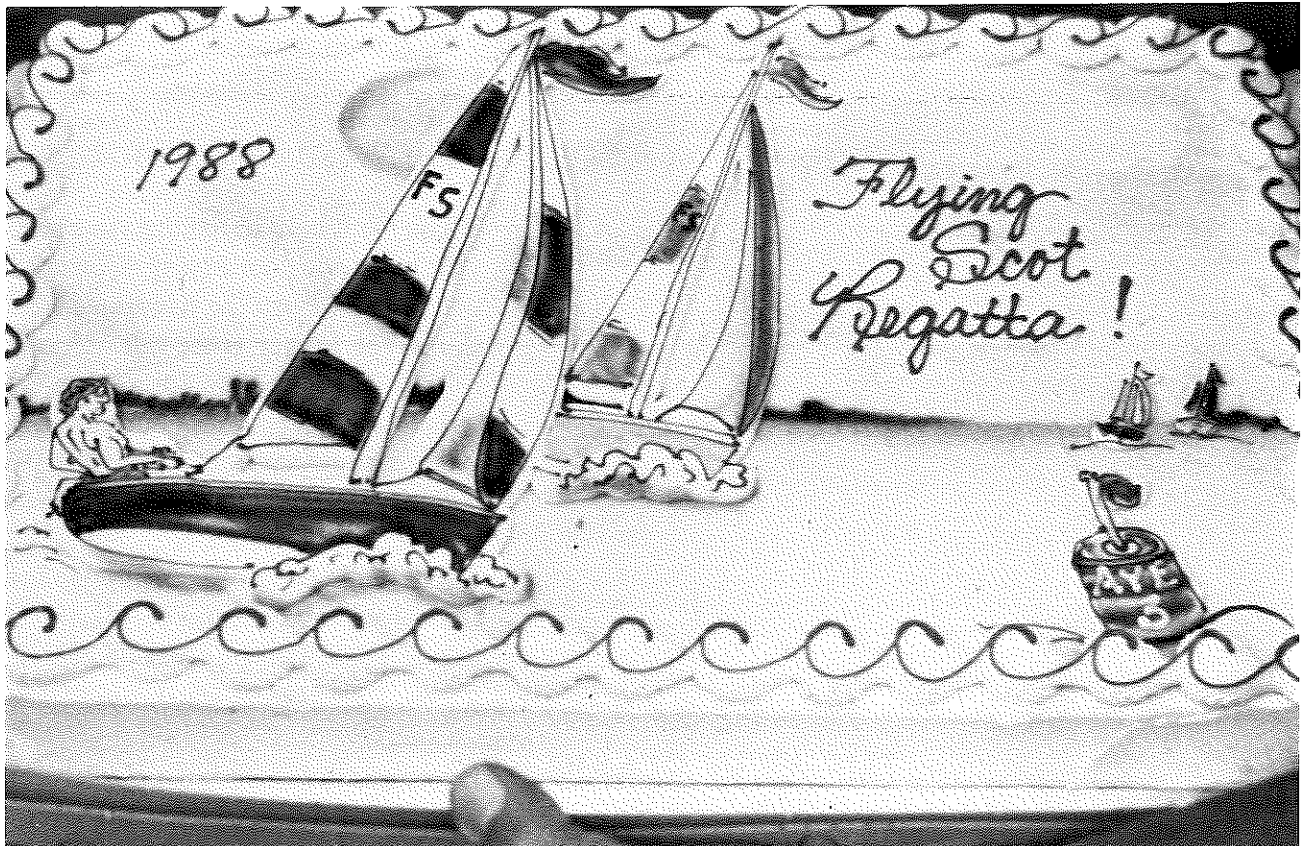 1988
FS
FS
Flying
Scot
Regatta!
AYE
3